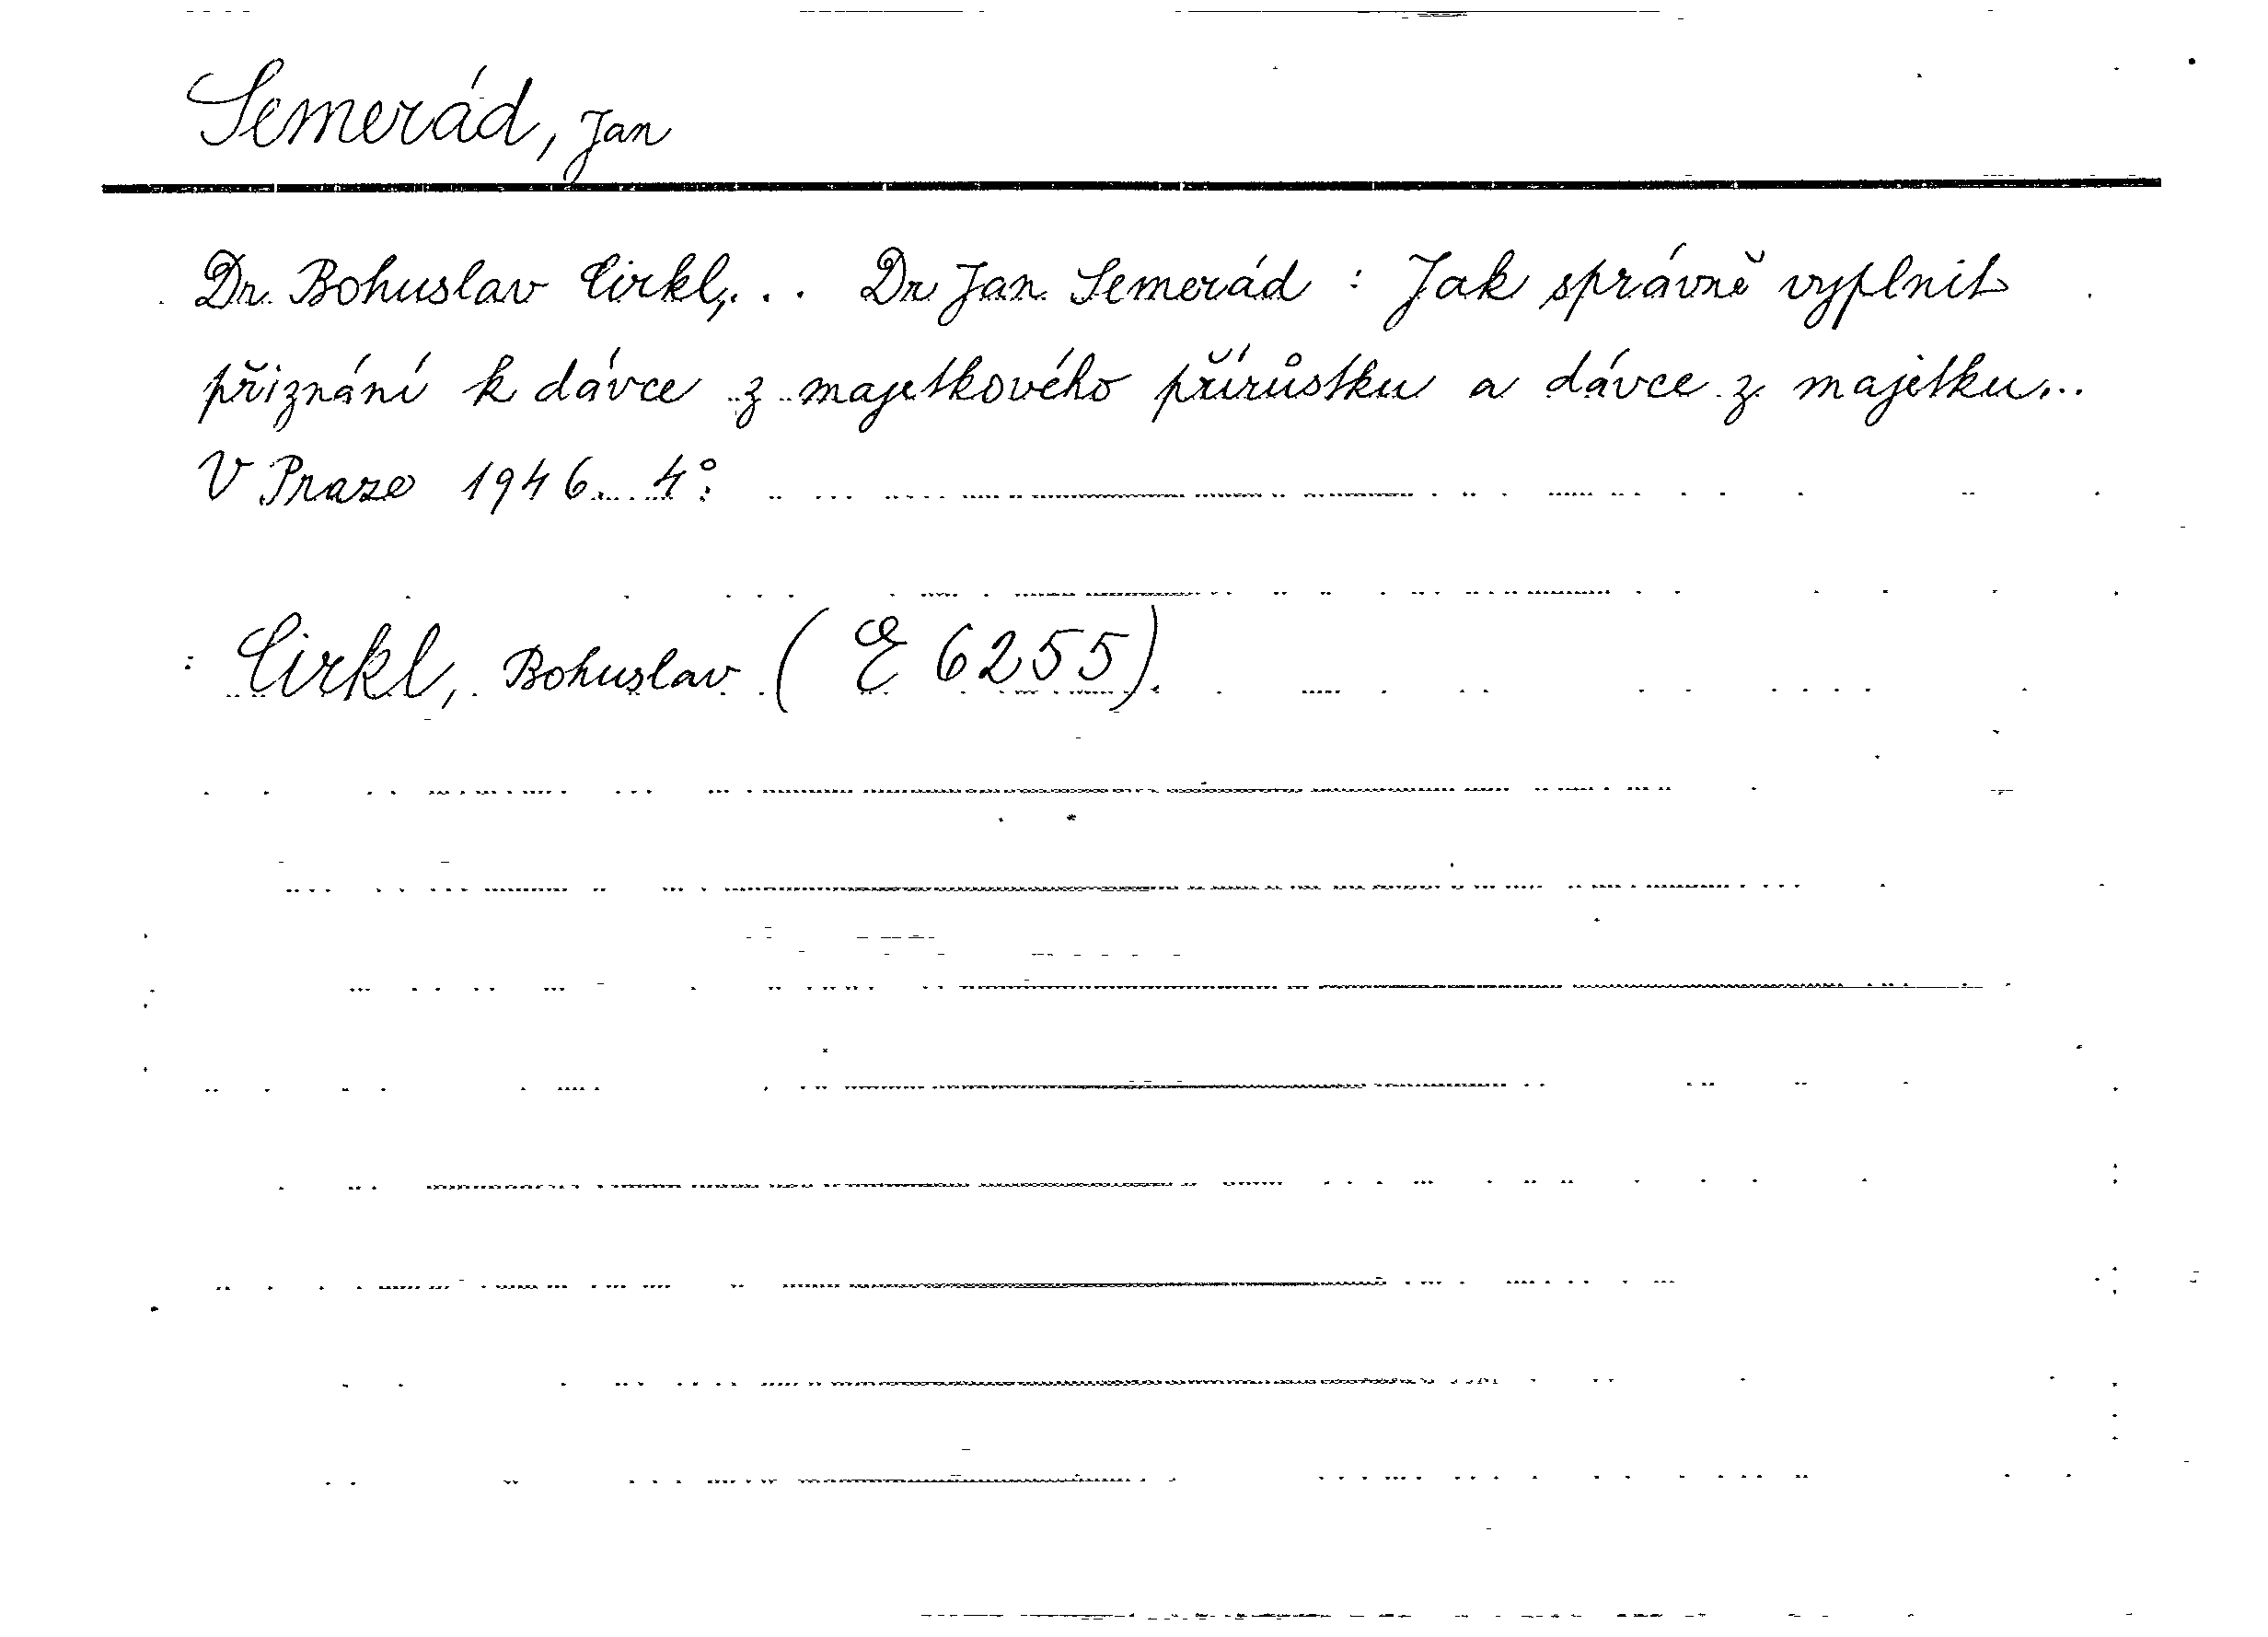 Semerád, Jan
Dr. Bohuslav Cirkl,... Dr Jan Semerád : Jak správně vyplnit
přiznání k dávce z majetkového přírůstku a dávce z majetku...
V Praze 1946. 4°.
Cirkl, Bohuslav ( E 6255).